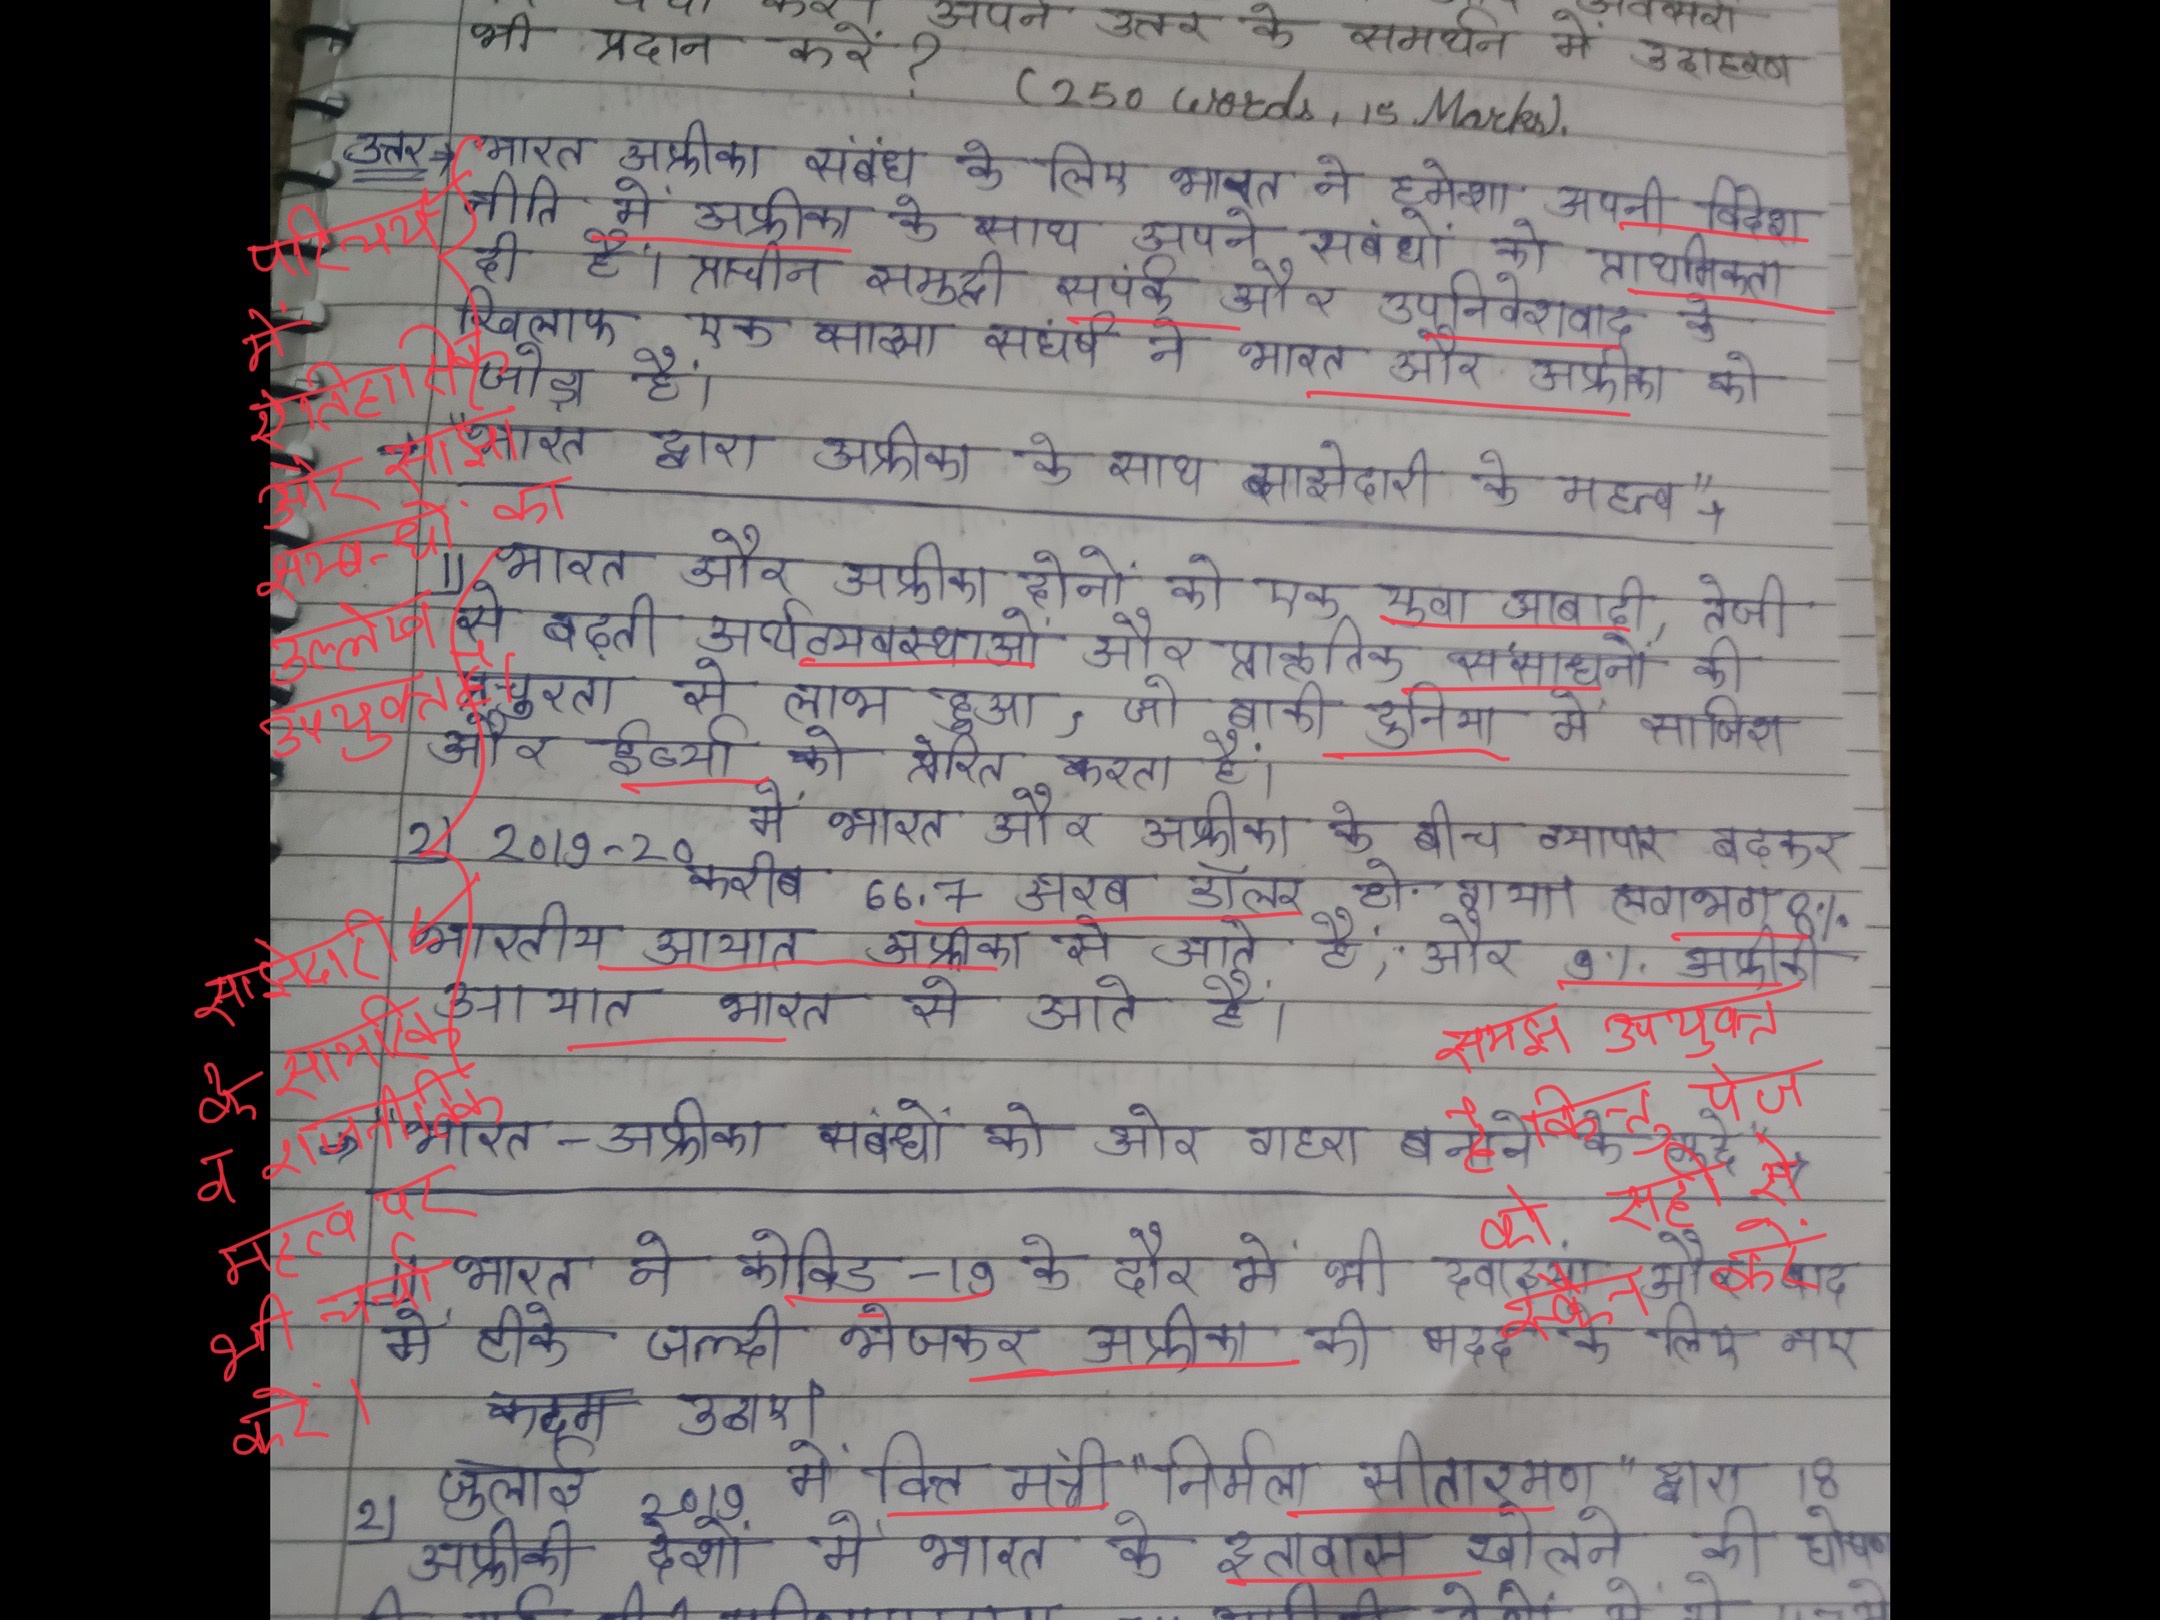 अपने उत्तर के समर्थन में उदाहरण
भी प्रदान करें ?
(250 words, 15 Marks).
उत्तर→ भारत अफ्रीका संबंध के लिए भारत ने हमेशा अपनी विदेश
नीति में अफ्रीका के साथ अपने सबंधों को प्राथमिकता
दी है। प्राचीन समुद्री सपंर्क और उपनिवेशवाद के
खिलाफ एक साझा सघंर्ष ने भारत और अफ्रीका को
जोड़ा है।
"भारत द्वारा अफ्रीका के साथ साझेदारी के महत्व"→
1) भारत और अफ्रीका दोनों को एक युवा आबादी, तेजी
से बढ़ती अर्थव्यवस्थाओं और प्राकृतिक संसाधनों की
प्रचुरता से लाभ हुआ, जो बाकी दुनिया में साजिश
और ईर्ष्या को प्रेरित करता है।
2) 2019-20 में भारत और अफ्रीका के बीच व्यापार बढ़कर
करीब 66.7 अरब डॉलर हो गया। लगभग 8%
भारतीय आयात अफ्रीका से आते है, और 9% अफ्रीकी
आयात भारत से आते है।
"भारत - अफ्रीका सबंधों को ओर गहरा बनाने के मुद्दे"
1) भारत ने कोविड -19 के दौर में भी दवाइयां और बाद
में टीके जल्दी भेजकर अफ्रीका की मदद के लिए नए
कदम उठाए।
2) जुलाई 2019 में वित्त मंत्री "निर्मला सीतारमण" द्वारा 18
अफ्रीकी देशों में भारत के दूतावास खोलने की घोषणा
परिचय
में
ऐतिहासिक
और साझा
सम्बन्धों का
उल्लेख
उपयुक्त है।
साझेदारी
के सामरिक
व राजनीतिक
महत्व पर
भी चर्चा
करें।
समझ उपयुक्त
है किन्तु पेज
को सही से
स्कैन करें